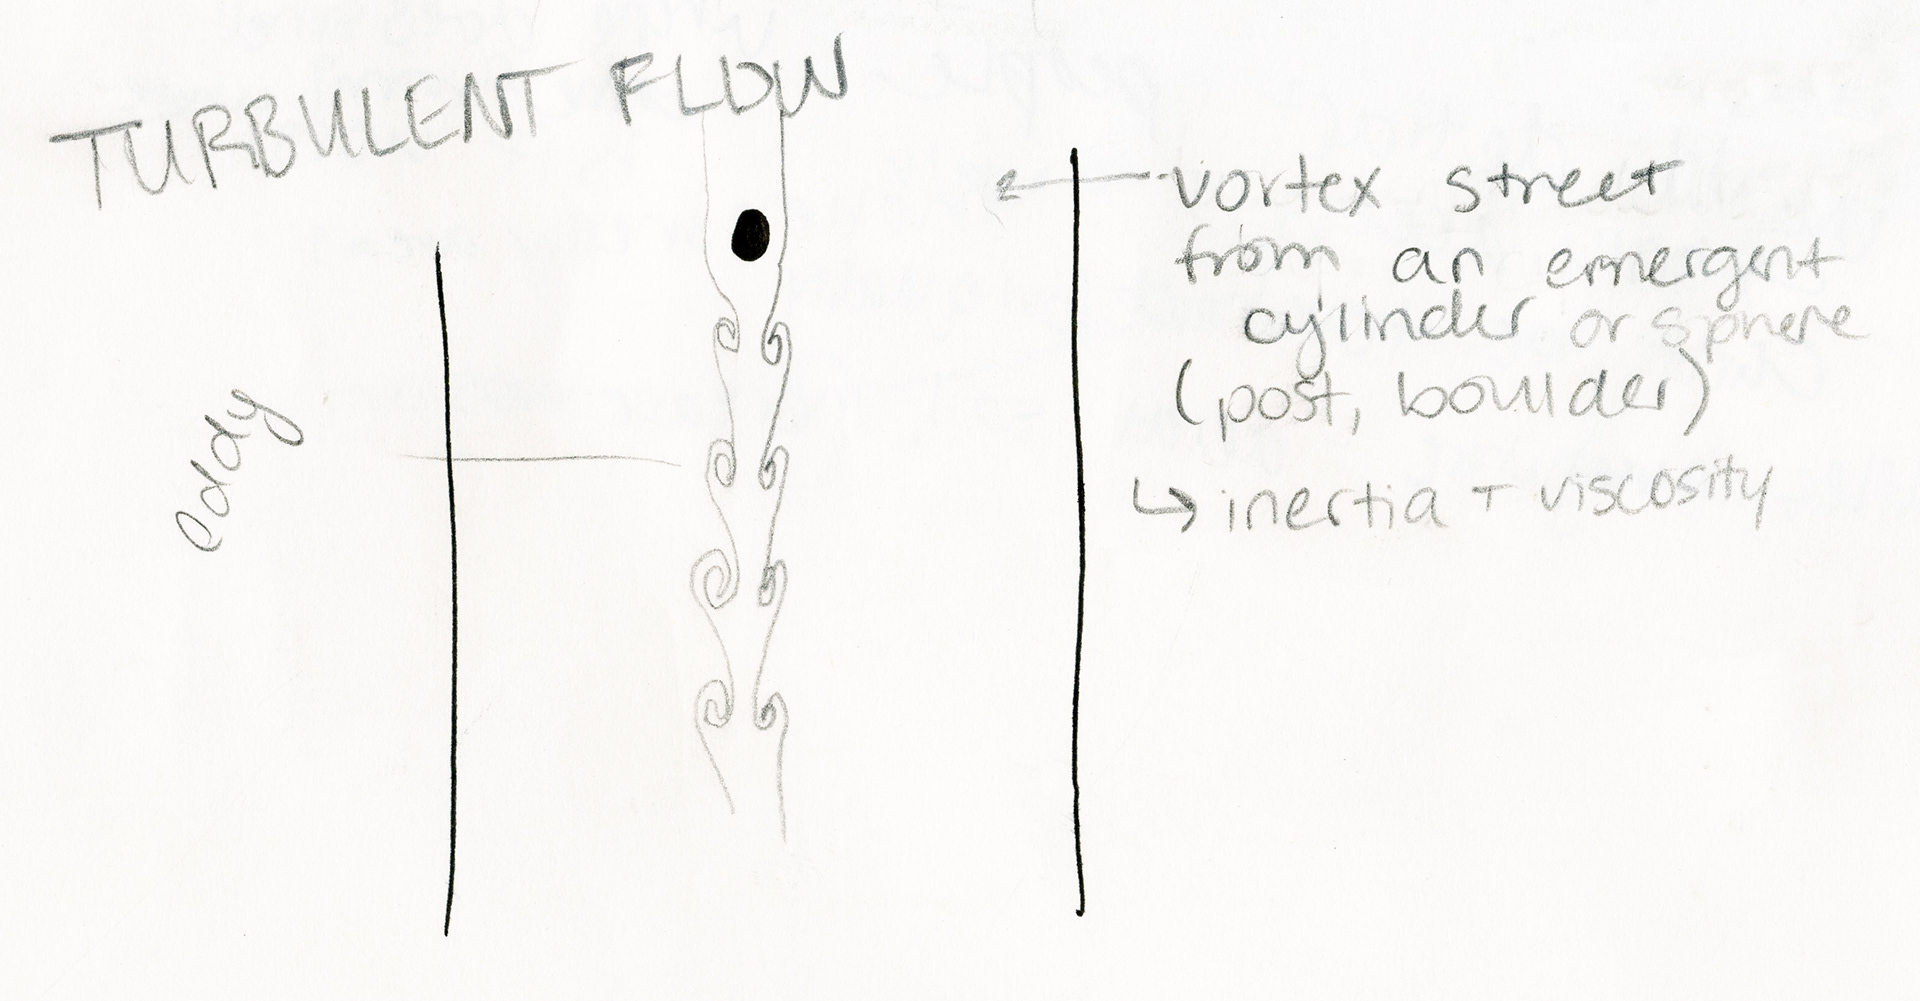 TURBULENT FLOW
eddy
vortex street
from an emergent
cylinder or sphere
(post, boulder)
↳ inertia + viscosity